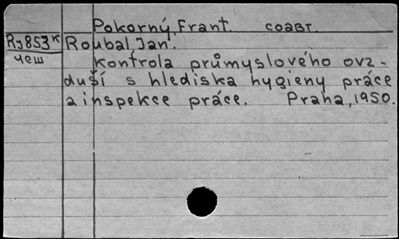 Pokorný, Frant. соавт.
Rj853к Roubal, Jan.
чеш Kontrola průmyslového ovz-
duší s hlediska hygieny práce
a inspekce práce. Praha, 1950.